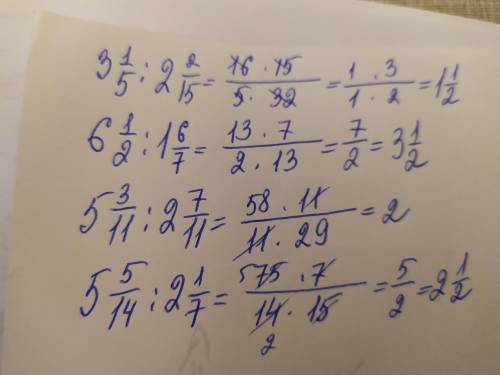 3 1/5 : 2 2/15 = 16 · 15 / 5 · 32 = 1 · 3 / 1 · 2 = 1 1/2
6 1/2 : 1 6/7 = 13 · 7 / 2 · 13 = 7/2 = 3 1/2
5 3/11 : 2 7/11 = 58 · 11 / 11 · 29 = 2
5 5/14 : 2 1/7 = 5 75 · 7 / 14 · 15 = 5/2 = 2 1/2
2